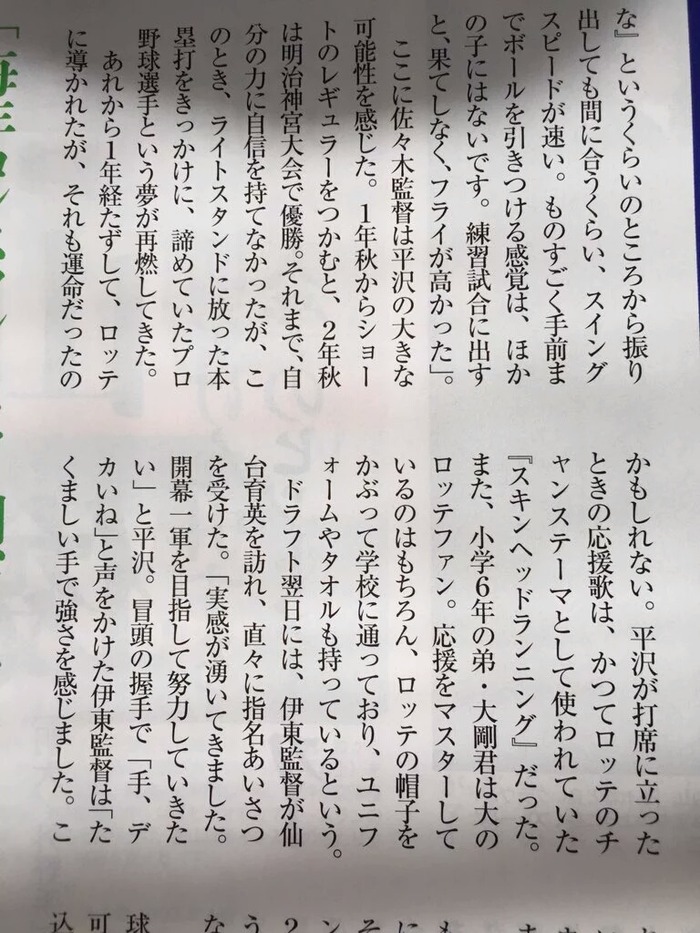 な』というくらいのところから振り
出しても間に合うくらい、スイング
スピードが速い。ものすごく手前ま
でボールを引きつける感覚は、ほか
の子にはないです。練習試合に出す
と、果てしなく、フライが高かった」。
ここに佐々木監督は平沢の大きな
可能性を感じた。1年秋からショー
トのレギュラーをつかむと、2年秋
は明治神宮大会で優勝。それまで、自
分の力に自信を持てなかったが、こ
のとき、ライトスタンドに放った本
塁打をきっかけに、諦めていたプロ
野球選手という夢が再燃してきた。
あれから1年経たずして、ロッテ
に導かれたが、それも運命だったの
かもしれない。平沢が打席に立った
ときの応援歌は、かつてロッテのチ
ャンステーマとして使われていた
『スキンヘッドランニング』だった。
また、小学6年の弟・大剛君は大の
ロッテファン。応援をマスターして
いるのはもちろん、ロッテの帽子を
かぶって学校に通っており、ユニフ
ォームやタオルも持っているという。
ドラフト翌日には、伊東監督が仙
台育英を訪れ、直々に指名あいさつ
を受けた。「実感が湧いてきました。
開幕一軍を目指して努力していきた
い」と平沢。冒頭の握手で「手、デ
カいね」と声をかけた伊東監督は「た
くましい手で強さを感じました。こ